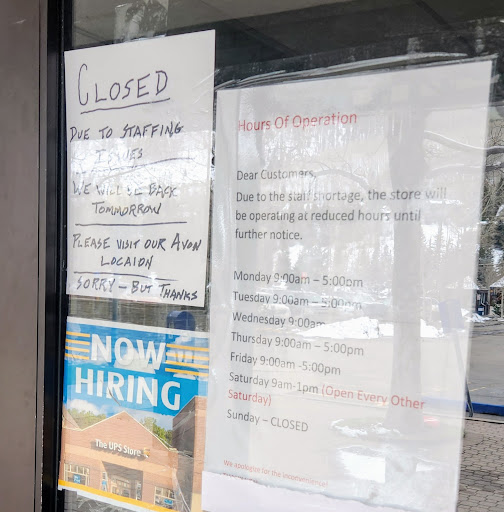 CLOSED
DUE TO STAFFING
ISSUES
WE WILL BE BACK
TOMMORROW
PLEASE VISIT OUR AVON
LOCAION
SORRY - BUT THANKS
NOW
HIRING
The UPS Store
Hours Of Operation
Dear Customers,
Due to the staff shortage, the store will
be operating at reduced hours until
further notice.
Monday 9:00am – 5:00pm
Tuesday 9:00am – 5:00pm
Wednesday 9:00am
Thursday 9:00am – 5:00pm
Friday 9:00am -5:00pm
Saturday 9am-1pm (Open Every Other
Saturday)
Sunday – CLOSED
We apologize for the inconvenience!